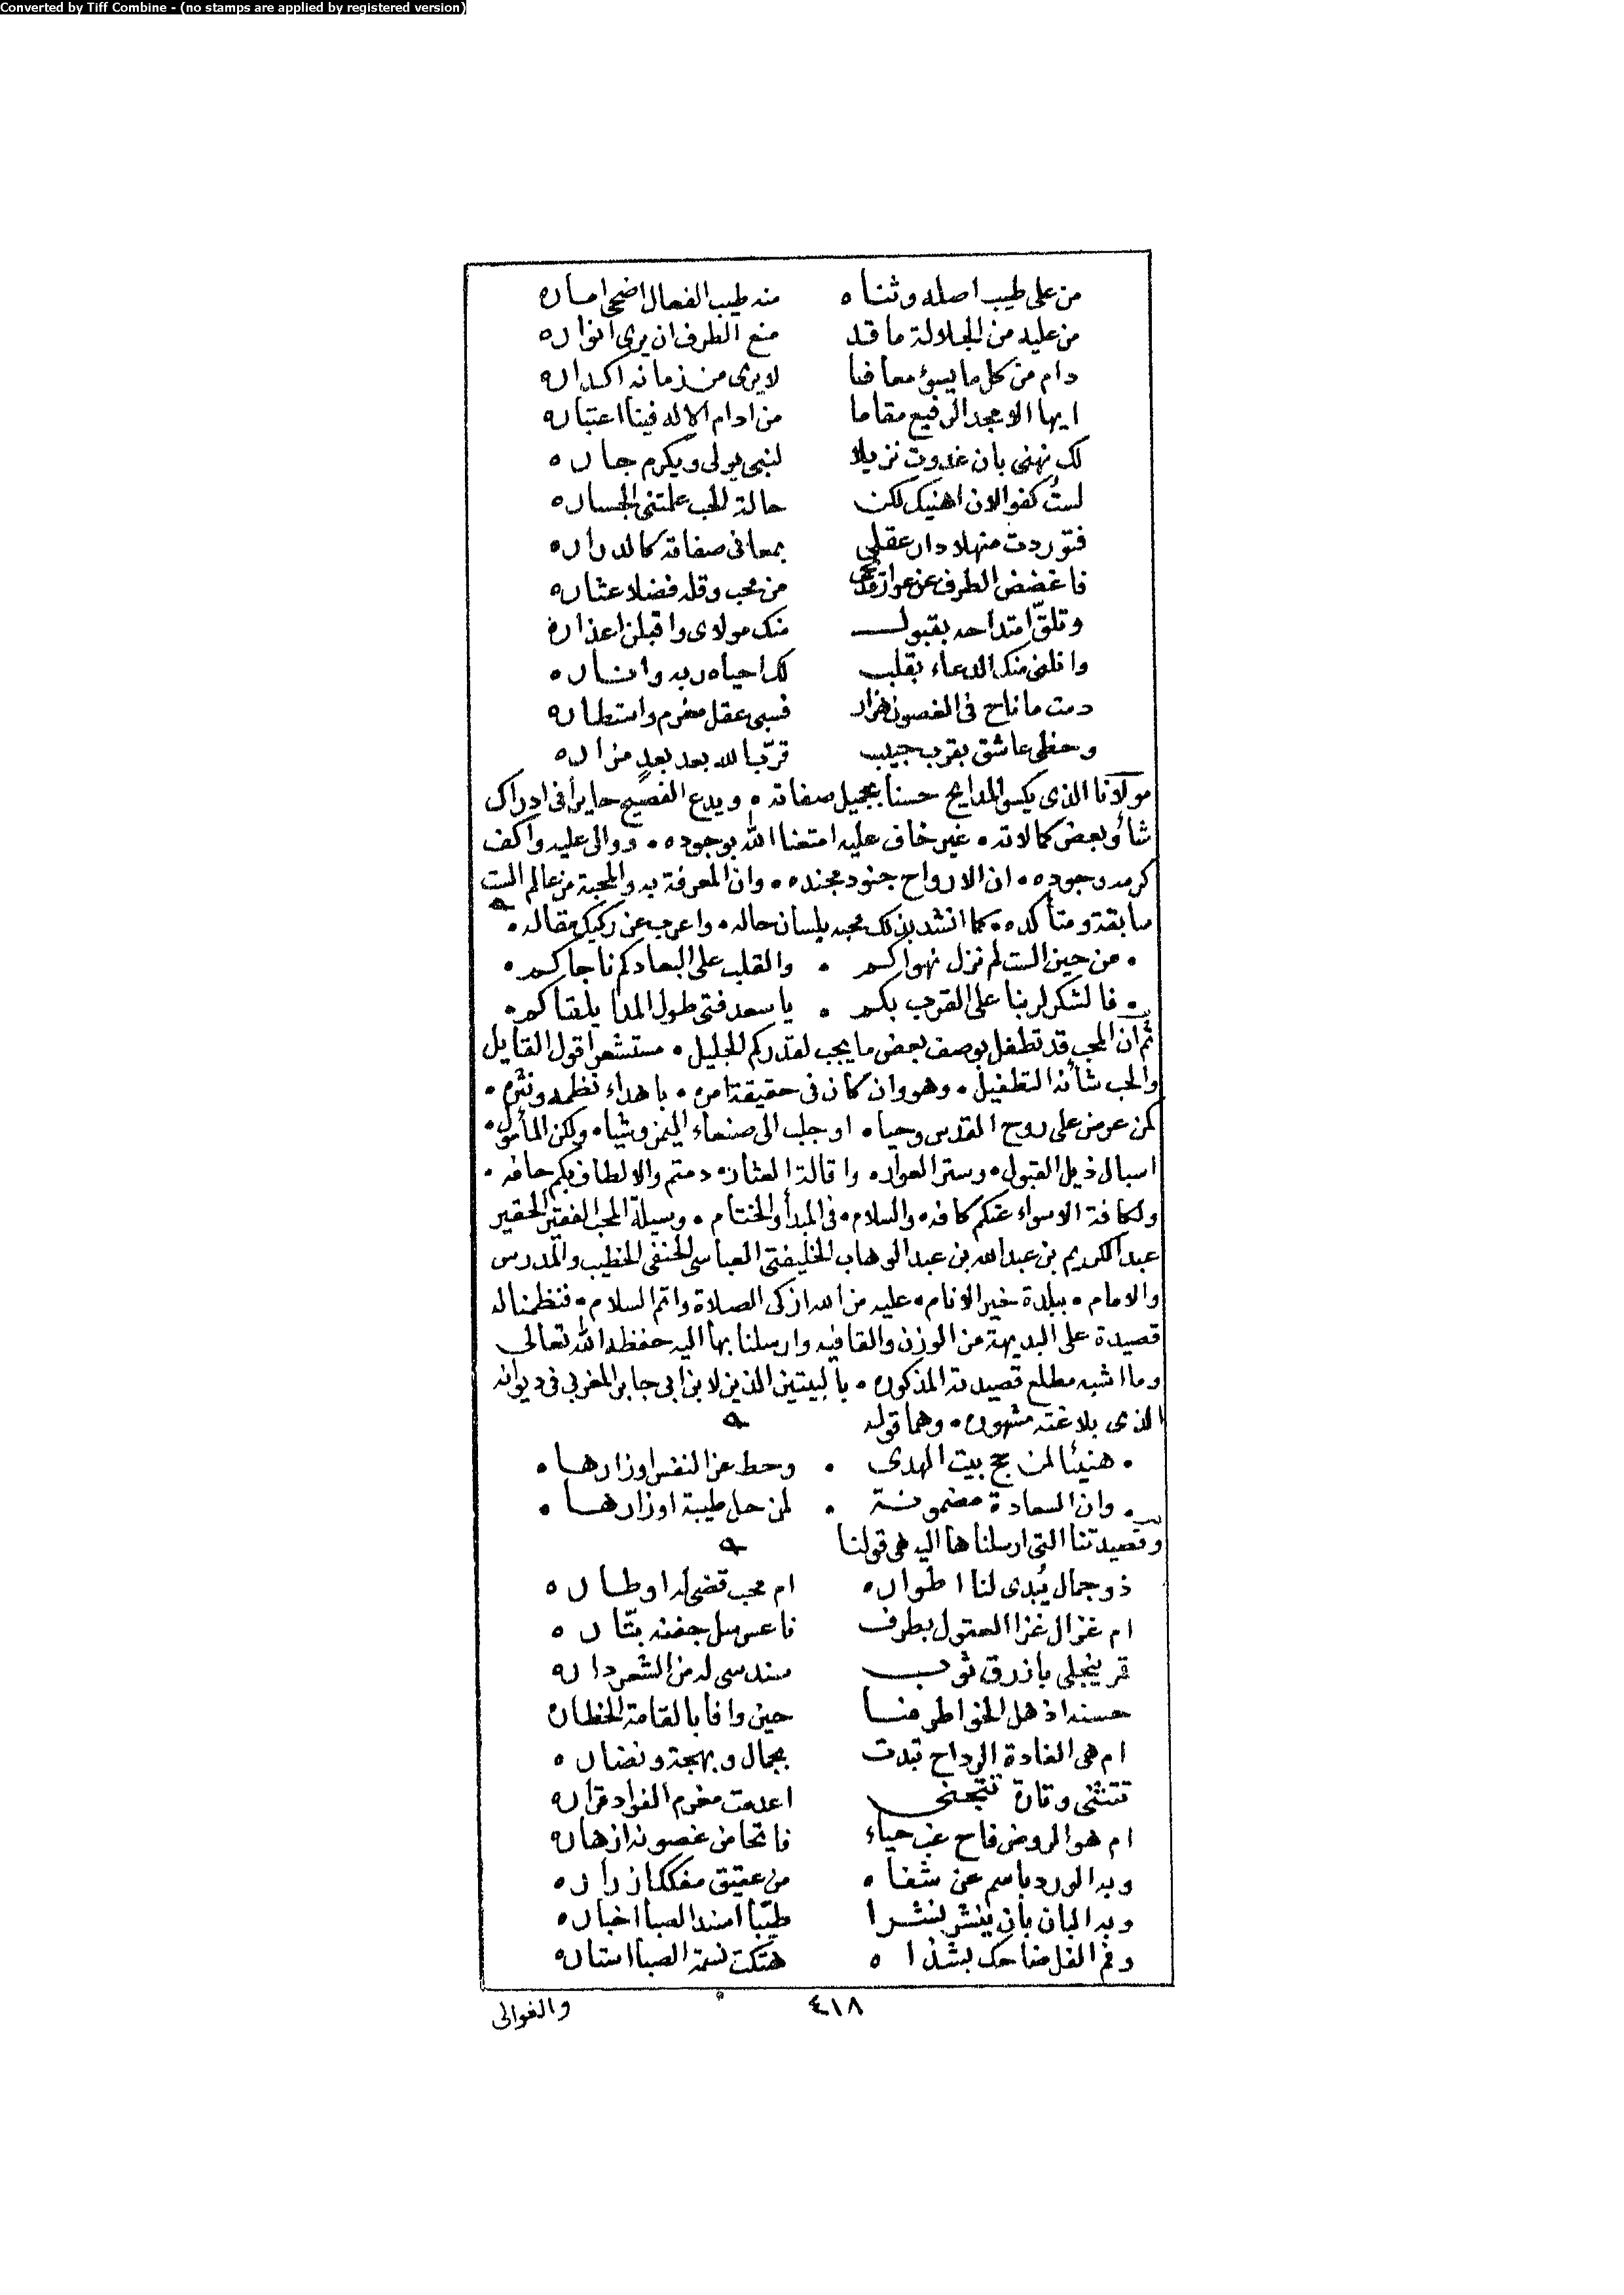 Converted by Tiff Combine - (no stamps are applied by registered version)
من على طيب اصله وثناه منه طيب الفعال اضحى اماره
من عليه من الجلالة ما قد منع الطرف ان يرى انواره
دام من كل ما يسؤ معافا لا يرى من زمانه اكداره
ايها الامجد الرفيع مقاما من ادام الاله فينا اعتباره
لك نهنى بان غدوت نزيلا لنبى يولى ويكرم جاره
لستُ كفوا لان اهنيك لكن حالة الحب علمتنى الجساره
فتوردت منهلا دار عقلى بمعانى صفاته كالدراره
فاغضض الطرف عن عوار من محب وقله فضلا عثاره
وتلقّ امتداحه بقبول منك مولاى واقبلن اعذاره
وانلنى منك الدعاء بقلب لك احياه ربه واناره
دمت ما ناح فى الغصون هزار فسبى عقل مغرم واستطاره
وحظى عاشق بقرب حبيب قرّب الله بعد بعدٍ مزاره
مولانا الذى يكسو المدايح حسنا بجميل صفاته ويدع الفصيح حايرا فى ادراك
شأو بعض كمالاته غير خاف عليه امتعنا الله بوجوده ووالى عليه واكف
كرمه وجوده ان الارواح جنود مجنده وان المعرفة به والمحبة من عالم الست
سابقة ومتأكده كما انشد بذلك محبه بلسان حاله واعرب عن ركيك مقاله
من حين الست لم نزل نهواكم والقلب على البعاد كم ناجاكم
فالشكر لربنا على القرب بكم يا سعد فتى طول المدا يلقاكم
ثم ان المحب قد تطفل بوصف بعض ما يجب لقدركم الجليل مستشعرا قول القايل
والحب شأنه التطفيل وهو وان كان فى حقيقة امره باهداء نظمه ونثره
كمن عرض على روح القدس وحيا او جلب الى صنعاء اليمن وشيا ولكن المأمول
اسبال ذيل القبول وستر العوار واقالة العثار دمتم والالطاف بكم حافه
ولكافة الاسواء عنكم كافه والسلام فى المبدأ والختام وسيلة المحب الفقير الحقير
عبد الكريم بن عبد الله بن عبد الوهاب الخليفتى العباسى الحنفى الخطيب والمدرس
والامام ببلدة خير الانام عليه من الله ازكى الصلاة واتم السلام فنظمنا له
قصيدة على البديهة من الوزن والقافيه وارسلنا بها اليه حفظه الله تعالى
وما اشبه مطلع قصيدته المذكوره بالبيتين الذين لابن ابى جابر المغربى فى ديوانه
الذى بلاغته مشهوره وهما قوله
هنيئا لمن حج بيت الهدى وحط عن النفس اوزارها
وان السعادة مضمونة لمن حل طيبة او زارها
وقصيدتنا التى ارسلناها اليه هى قولنا
ذو جمال يُبدى لنا اطواره ام محب قضى له اوطاره
ام غزال غزا العقول بطرف ناعس سل جفنه بتّاره
قمر ينجلى بازرق ثوب سندسى له من الشعر داره
حسنه اذهل الخواطر منا حين وافا بالقامة الخطاره
ام هى الغادة الرداح تبدت بجمال وبهجة ونضاره
تتثنى وتارة تتجنى اعدمت مغرم الفواد قراره
ام هو الروض فاح غب حياء فاتحا من غصونه ازهاره
وبدا لورد باسم عن شفاه من عقيق مفككا ازراره
وبدا لبان بان ينشر نشرا طيّبا اسند الصبا اخباره
وفم الفل ضاحك بشذاه هتكت نسمة الصبا استاره
٤١٨
والغوالى